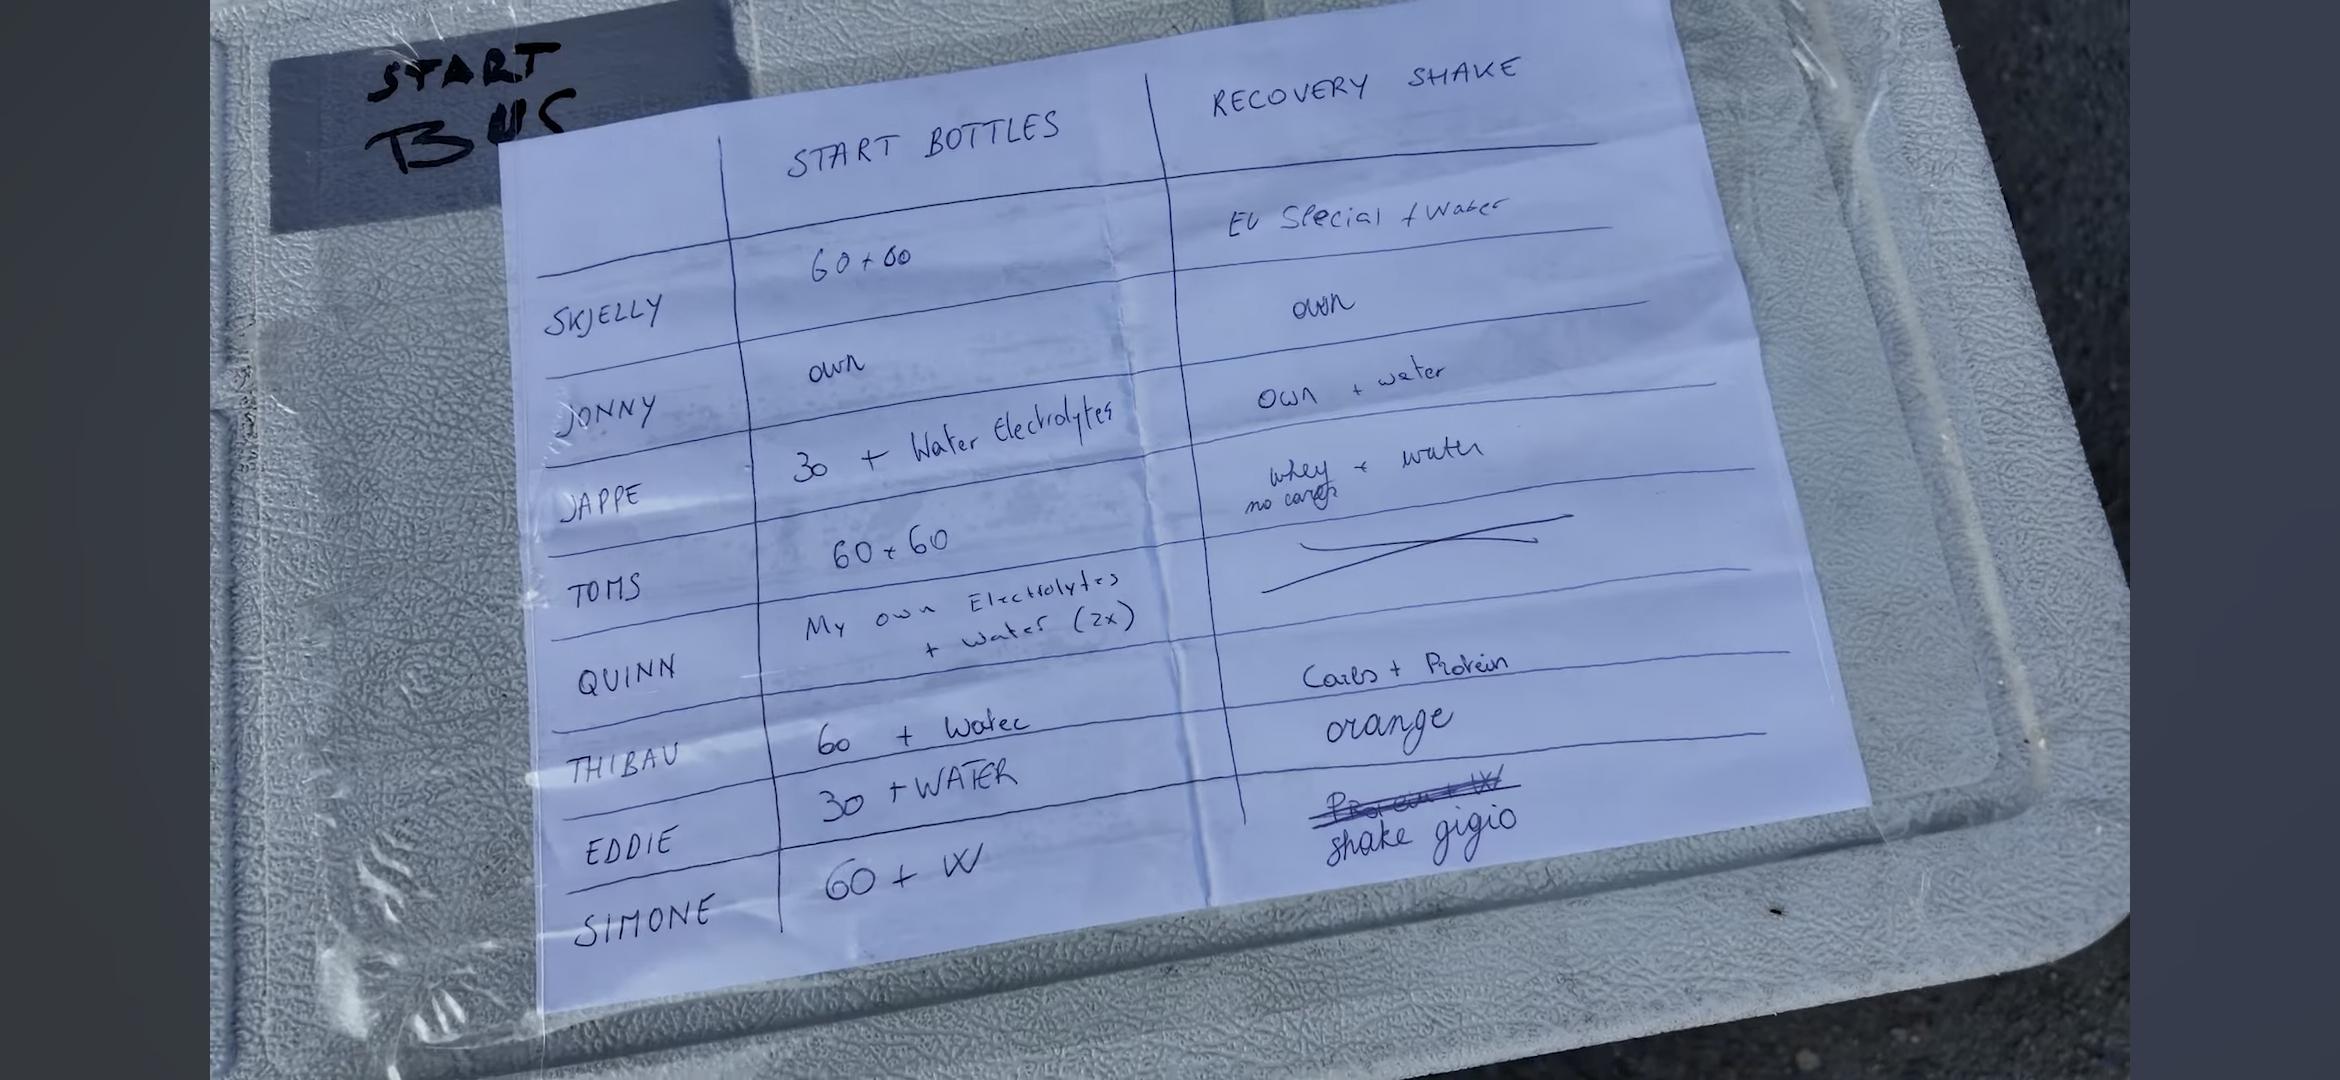 START
BUS
START BOTTLES RECOVERY SHAKE
SKJELLY 60+60 EV Special + Water
JONNY own own
JAPPE 30 + Water Electrolytes Own + water
TOMS 60+60 whey + water
no carbs
QUINN My own Electrolytes
+ water (2x)
THIBAU 60 + Water Carbs + Protein
EDDIE 30 + WATER orange
SIMONE 60 + W Protein + W
shake gigio